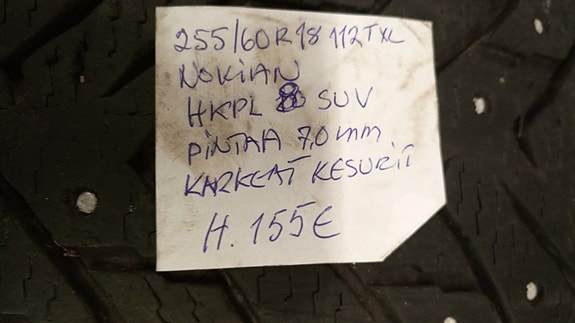 255/60R18 112T XL
NOKIAN
HKPL 8 SUV
PINTAA 7,0 mm
KARKEAT KESURIT
H. 155€